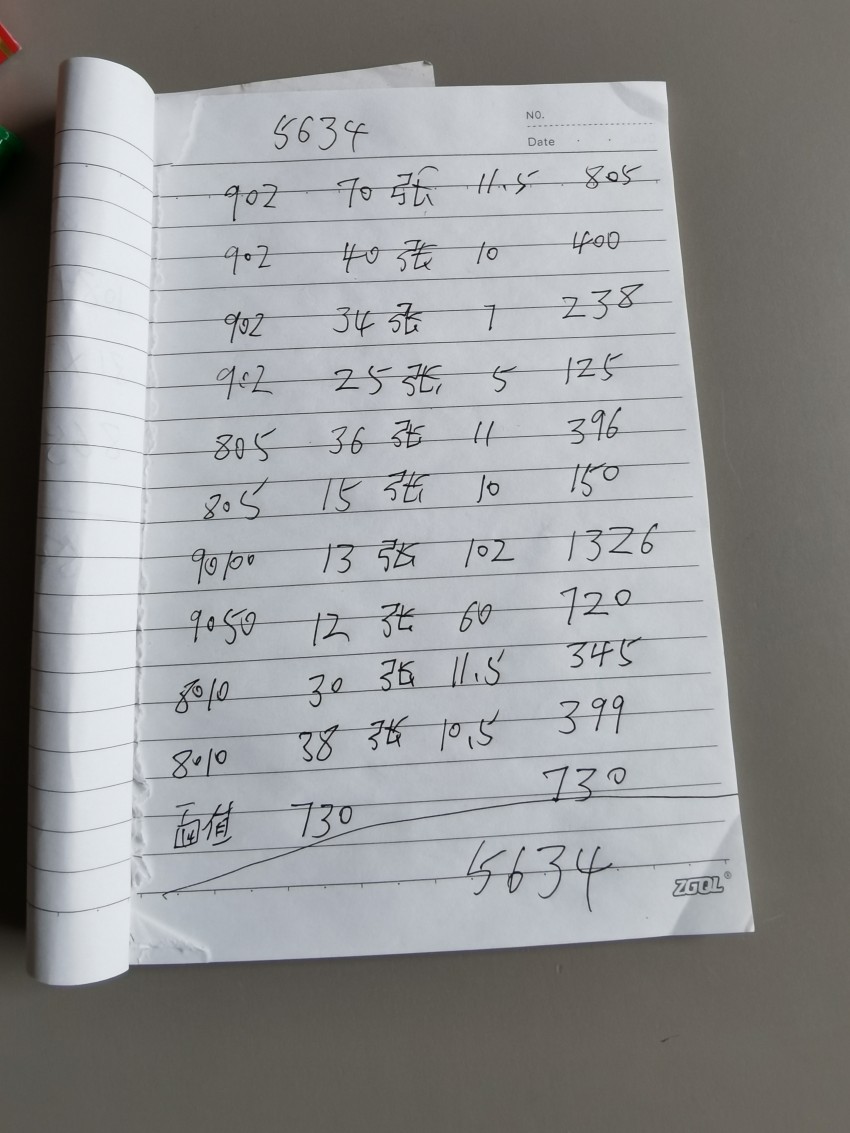 5634
NO.
Date
902 70张 11.5 805
902 40张 10 400
902 34张 7 238
902 25张 5 125
805 36张 11 396
805 15张 10 150
90100 13张 102 1326
9050 12张 60 720
8010 30张 11.5 345
8010 38张 10.5 399
面值 730 730
5634
ZGQL®